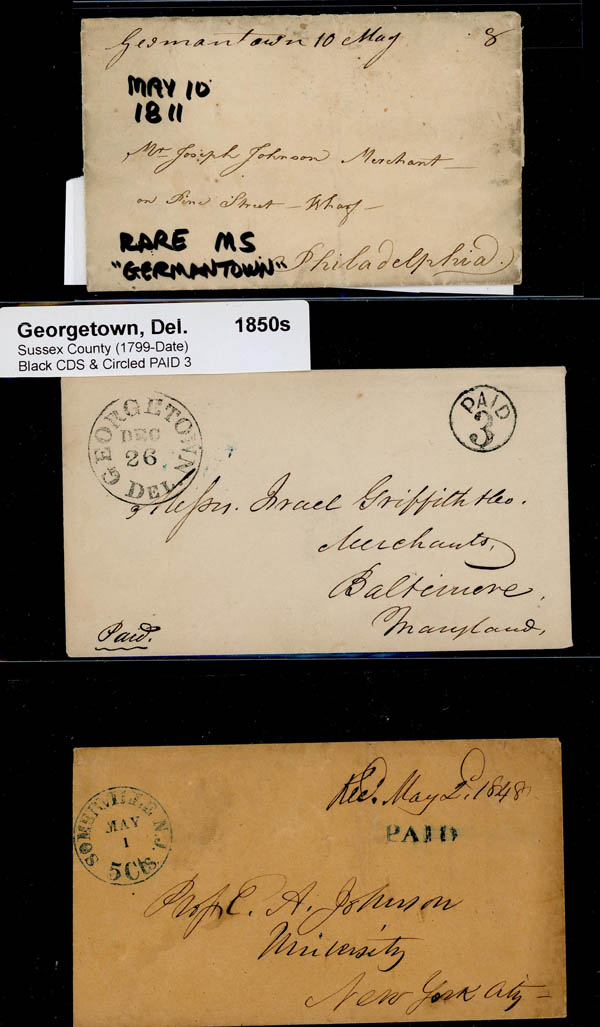 Germantown 10 May 8
MAY 10
1811
Mr Joseph Johnson Merchant —
on Pine Street — Wharf —
RARE MS
"GERMANTOWN"
Philadelphia.
Georgetown, Del. 1850s
Sussex County (1799-Date)
Black CDS & Circled PAID 3
GEORGETOWN
DEC
26
DEL.
PAID
3
Messrs. Israel Griffith & Co.
Merchants,
Baltimore,
Maryland,
Paid.
Recd. May 2d. 1848
SOMERVILLE N.J.
MAY
1
5 Cts.
PAID
Prof. C. A. Johnson
University
New York City —